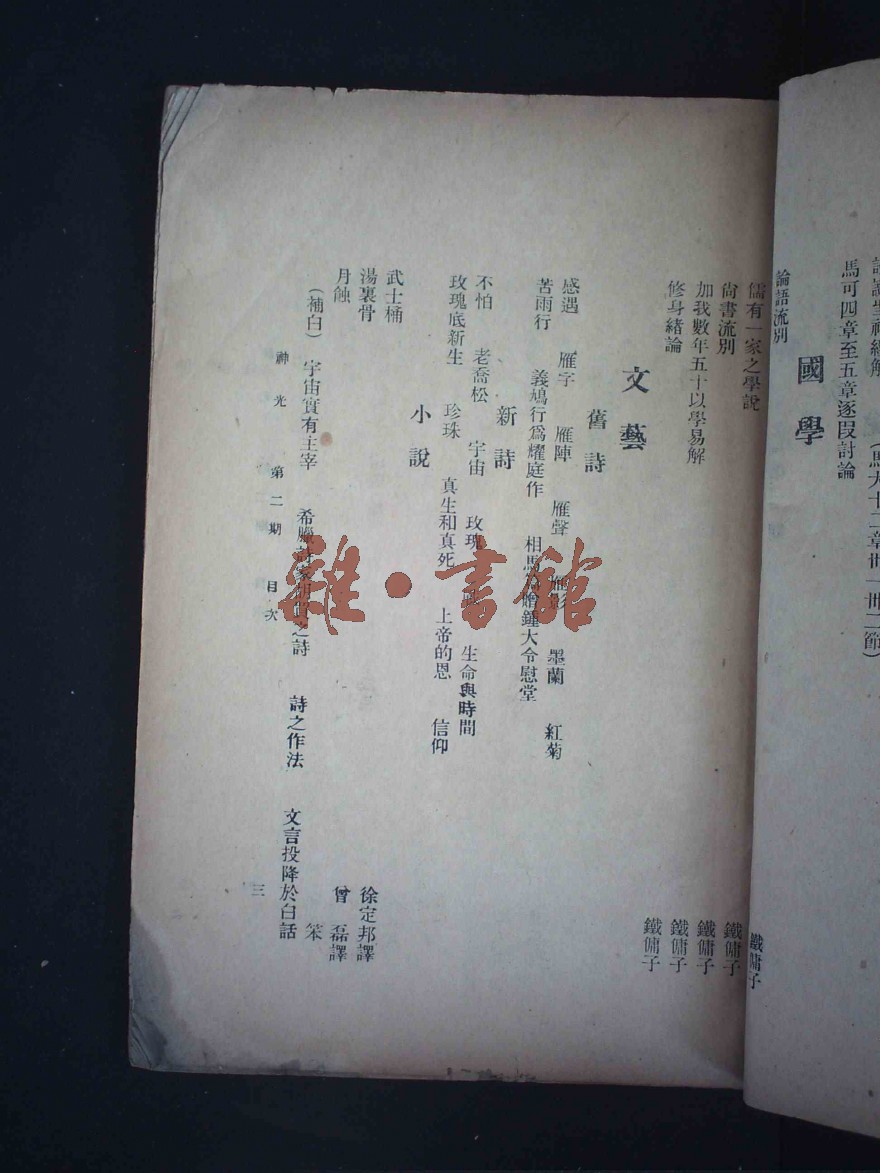 馬可四章至五章逐段討論
國學
論語流別
儒有一家之學說 鐵傭子
尙書流別 鐵傭子
加我數年五十以學易解 鐵傭子
修身緒論 鐵傭子
鐵傭子
文藝
舊詩
感遇 雁字 雁陣 雁聲 雁影 墨蘭 紅菊
苦雨行 義鴆行爲耀庭作 相馬 贈鍾大令慰堂
新詩
不怕 老喬松 宇宙 玫瑰 生命與時間
玫瑰底新生 珍珠 真生和真死 上帝的恩 信仰
小說
武士桶 徐定邦譯
湯裏骨 曾磊譯
月蝕 笨
（補白） 宇宙實有主宰 希臘 之詩 詩之作法 文言投降於白話
神光 第二期 目次 三
雜·書館